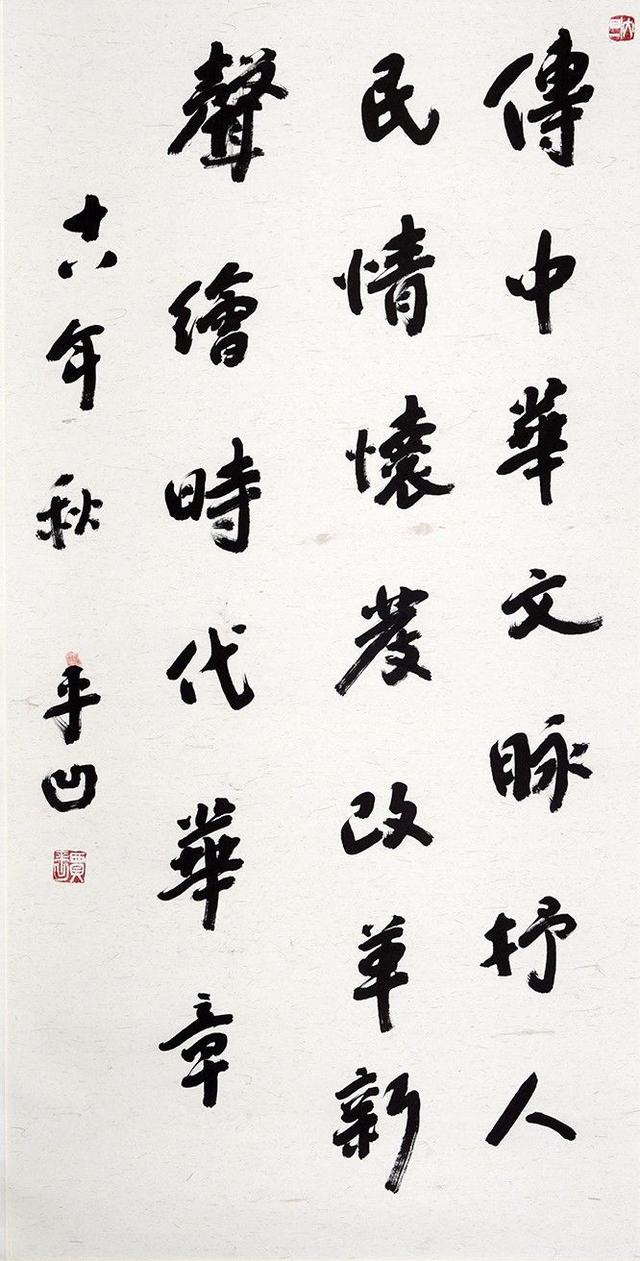 傳中華文脉抒人
民情懷發改革新
聲繪時代華章
十八年秋 平凹